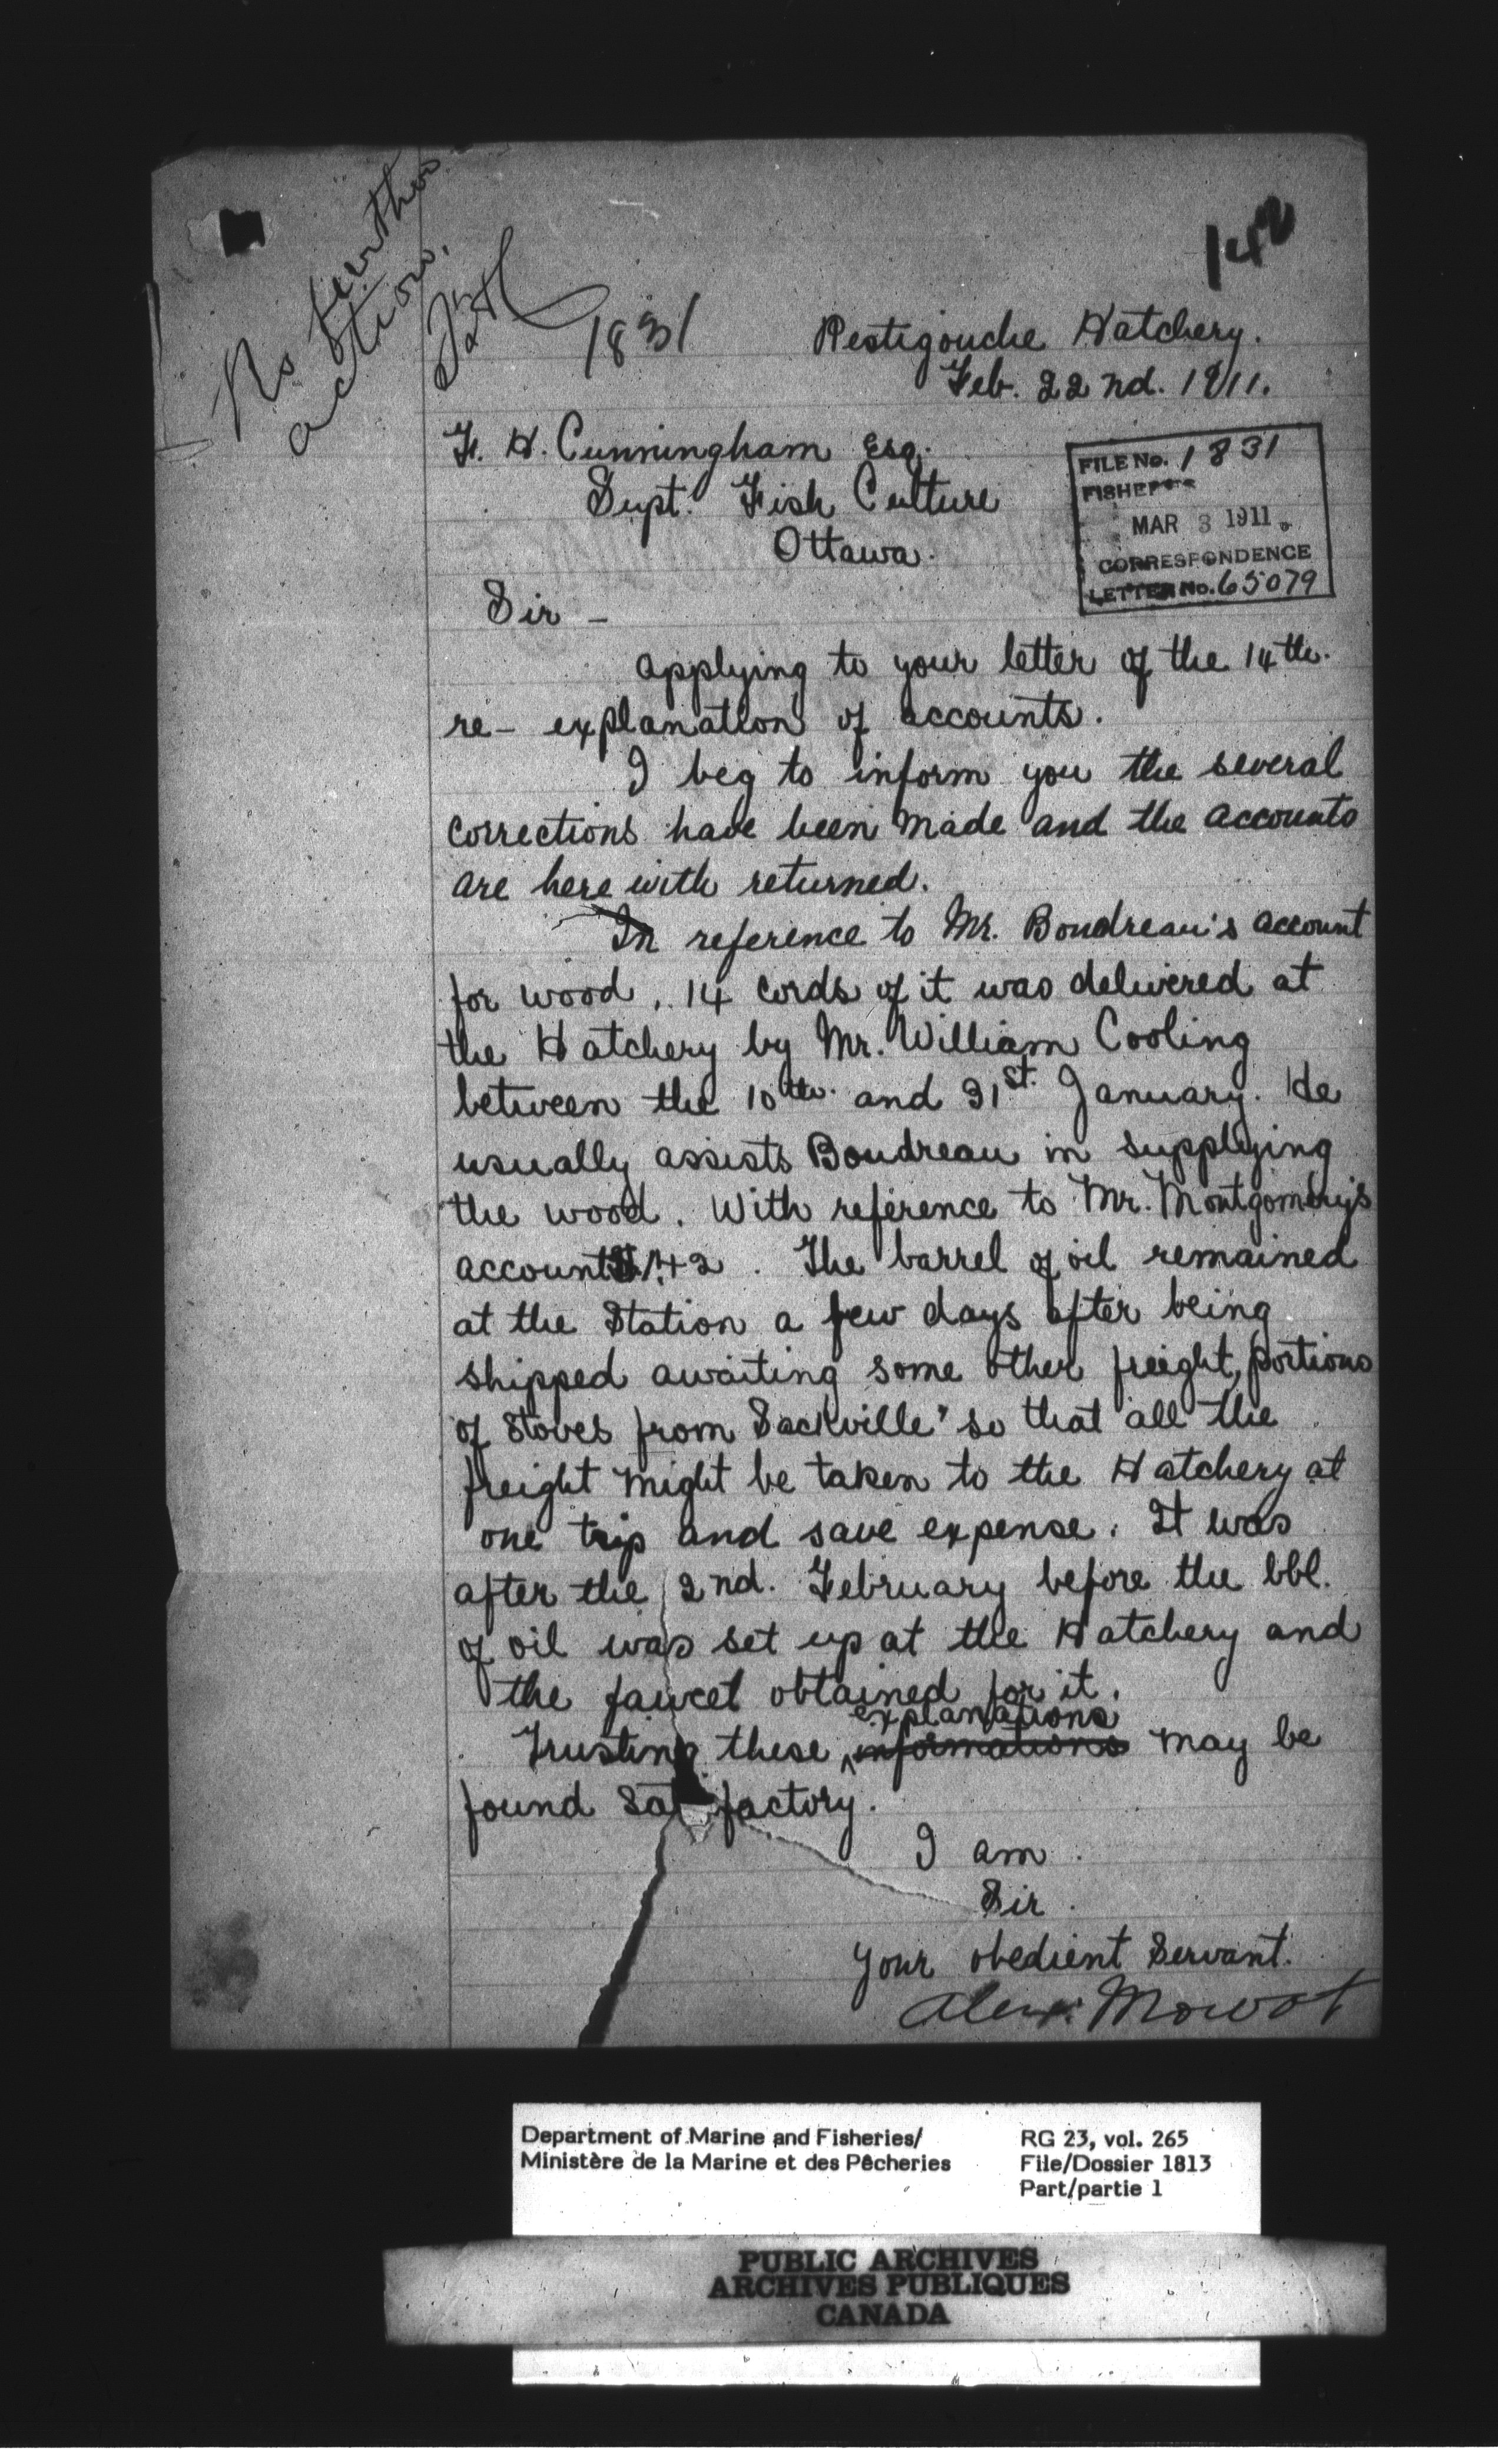 No further
action.
142
1831
Restigouche Hatchery.
Feb. 22nd. 1911.
F. H. Cunningham Esq.
Supt. Fish Culture
Ottawa.
FILE No. 1831
FISHERIES
MAR 3 1911
CORRESPONDENCE
LETTER No. 65079
Sir -
applying to your letter of the 14th.
re- explanation of accounts.
I beg to inform you the several
corrections have been made and the accounts
are here with returned.
In reference to Mr. Boudreau's account
for wood, 14 cords of it was delivered at
the Hatchery by Mr. William Cooling
between the 10th. and 31st. January. He
usually assists Boudreau in supplying
the wood. With reference to Mr. Montgomery's
account $1.42. The barrel of oil remained
at the Station a few days after being
shipped awaiting some other freight, portions
of stoves from Sackville" so that all the
freight might be taken to the Hatchery at
one trip and save expense. It was
after the 2nd. February before the bbl.
of oil was set up at the Hatchery and
the faucet obtained for it.
explanations
Trusting these informations may be
found Satisfactory.
I am
Sir.
your obedient Servant.
Alex. Mowat
Department of Marine and Fisheries/
Ministère de la Marine et des Pêcheries
RG 23, vol. 265
File/Dossier 1813
Part/partie 1
PUBLIC ARCHIVES
ARCHIVES PUBLIQUES
CANADA